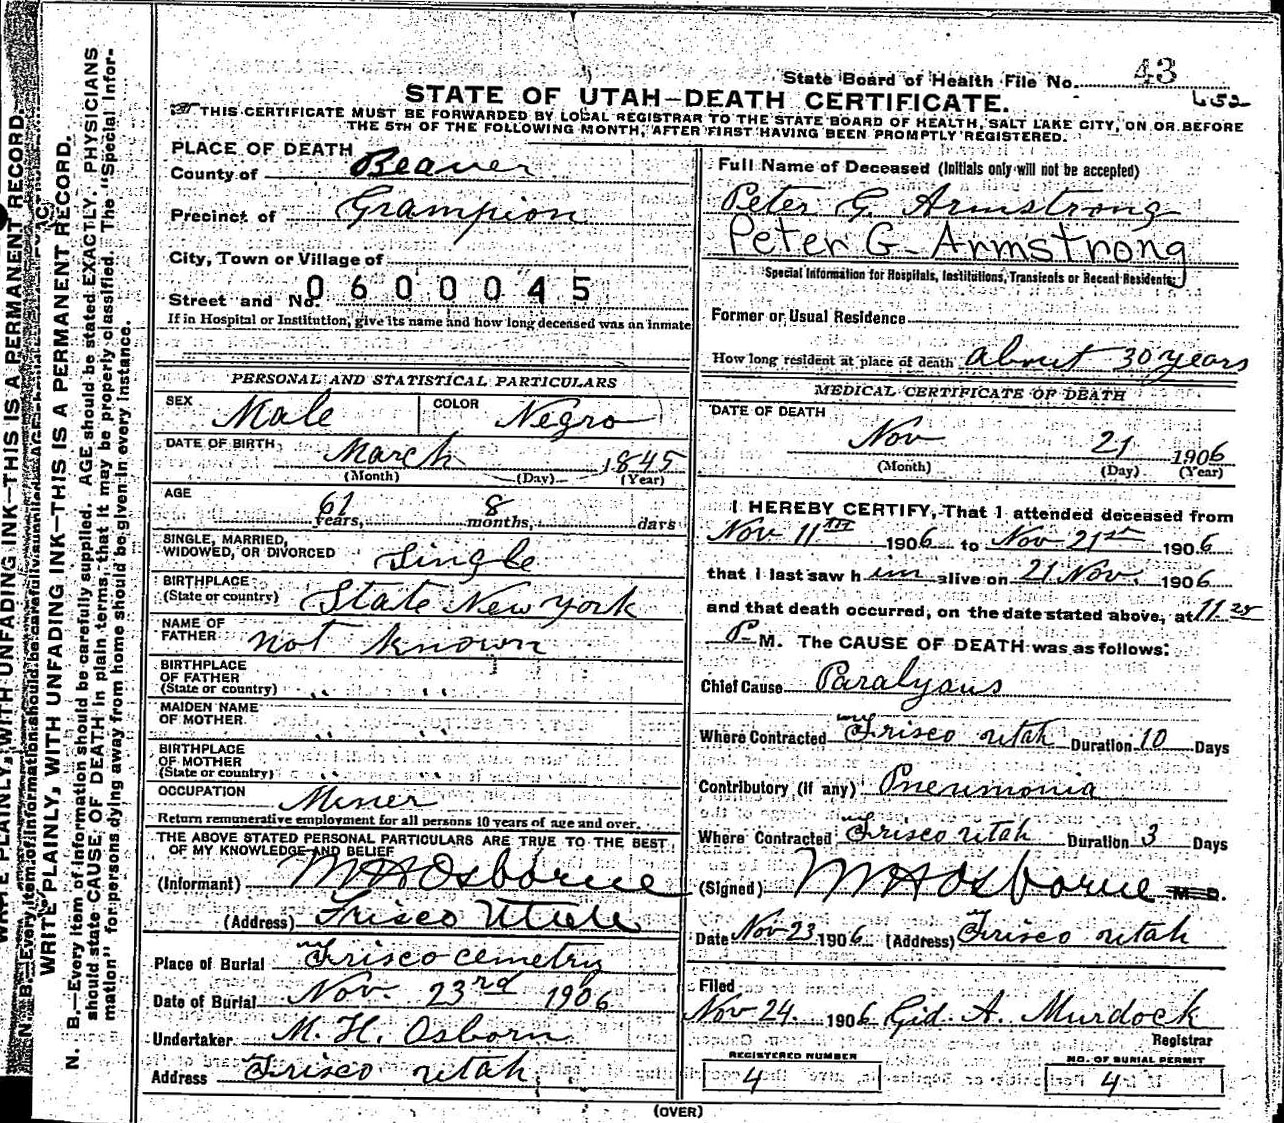 State Board of Health File No. 43
652
STATE OF UTAH—DEATH CERTIFICATE.
THIS CERTIFICATE MUST BE FORWARDED BY LOCAL REGISTRAR TO THE STATE BOARD OF HEALTH, SALT LAKE CITY, ON OR BEFORE
THE 5TH OF THE FOLLOWING MONTH, AFTER FIRST HAVING BEEN PROMPTLY REGISTERED.
PLACE OF DEATH
County of Beaver
Precinct of Grampion
City, Town or Village of
Street and No. 0600045
If in Hospital or Institution, give its name and how long deceased was an inmate
PERSONAL AND STATISTICAL PARTICULARS
SEX Male COLOR Negro
DATE OF BIRTH March 1845
(Month) (Day) (Year)
AGE 61 years, 8 months, days
SINGLE, MARRIED,
WIDOWED, OR DIVORCED Single
BIRTHPLACE
(State or country) State New York
NAME OF
FATHER not known
BIRTHPLACE
OF FATHER
(State or country) " "
MAIDEN NAME
OF MOTHER " "
BIRTHPLACE
OF MOTHER
(State or country) " "
OCCUPATION Miner
Return remunerative employment for all persons 10 years of age and over.
THE ABOVE STATED PERSONAL PARTICULARS ARE TRUE TO THE BEST
OF MY KNOWLEDGE AND BELIEF
(Informant) M H Osborne
(Address) Frisco Utah
Place of Burial Frisco cemetry
Date of Burial Nov. 23rd 1906
Undertaker M. H. Osborn
Address Frisco utah
Full Name of Deceased (Initials only will not be accepted)
Peter G. Armstrong
Peter G- Armstrong
Special Information for Hospitals, Institutions, Transients or Recent Residents:
Former or Usual Residence
How long resident at place of death about 30 years
MEDICAL CERTIFICATE OF DEATH
DATE OF DEATH
Nov 21 1906
(Month) (Day) (Year)
I HEREBY CERTIFY, That I attended deceased from
Nov 11TH 1906 to Nov 21st 1906
that I last saw him alive on 21 Nov. 1906
and that death occurred, on the date stated above, at 11.25
P M. The CAUSE OF DEATH was as follows:
Chief Cause Paralysus
Where Contracted Frisco utah Duration 10 Days
Contributory (if any) Pneumonia
Where Contracted Frisco utah Duration 3 Days
(Signed) M H Osborne M. D.
Date Nov 23 1906 (Address) Frisco utah
Filed
Nov 24. 1906 Gid. A. Murdock
Registrar
REGISTERED NUMBER
4
NO. OF BURIAL PERMIT
4
(OVER)
WRITE PLAINLY, WITH UNFADING INK—THIS IS A PERMANENT RECORD.
N. B.—Every item of information should be carefully supplied. AGE should be stated EXACTLY. PHYSICIANS
should state CAUSE OF DEATH in plain terms, that it may be properly classified. The "Special Infor-
mation" for persons dying away from home should be given in every instance.